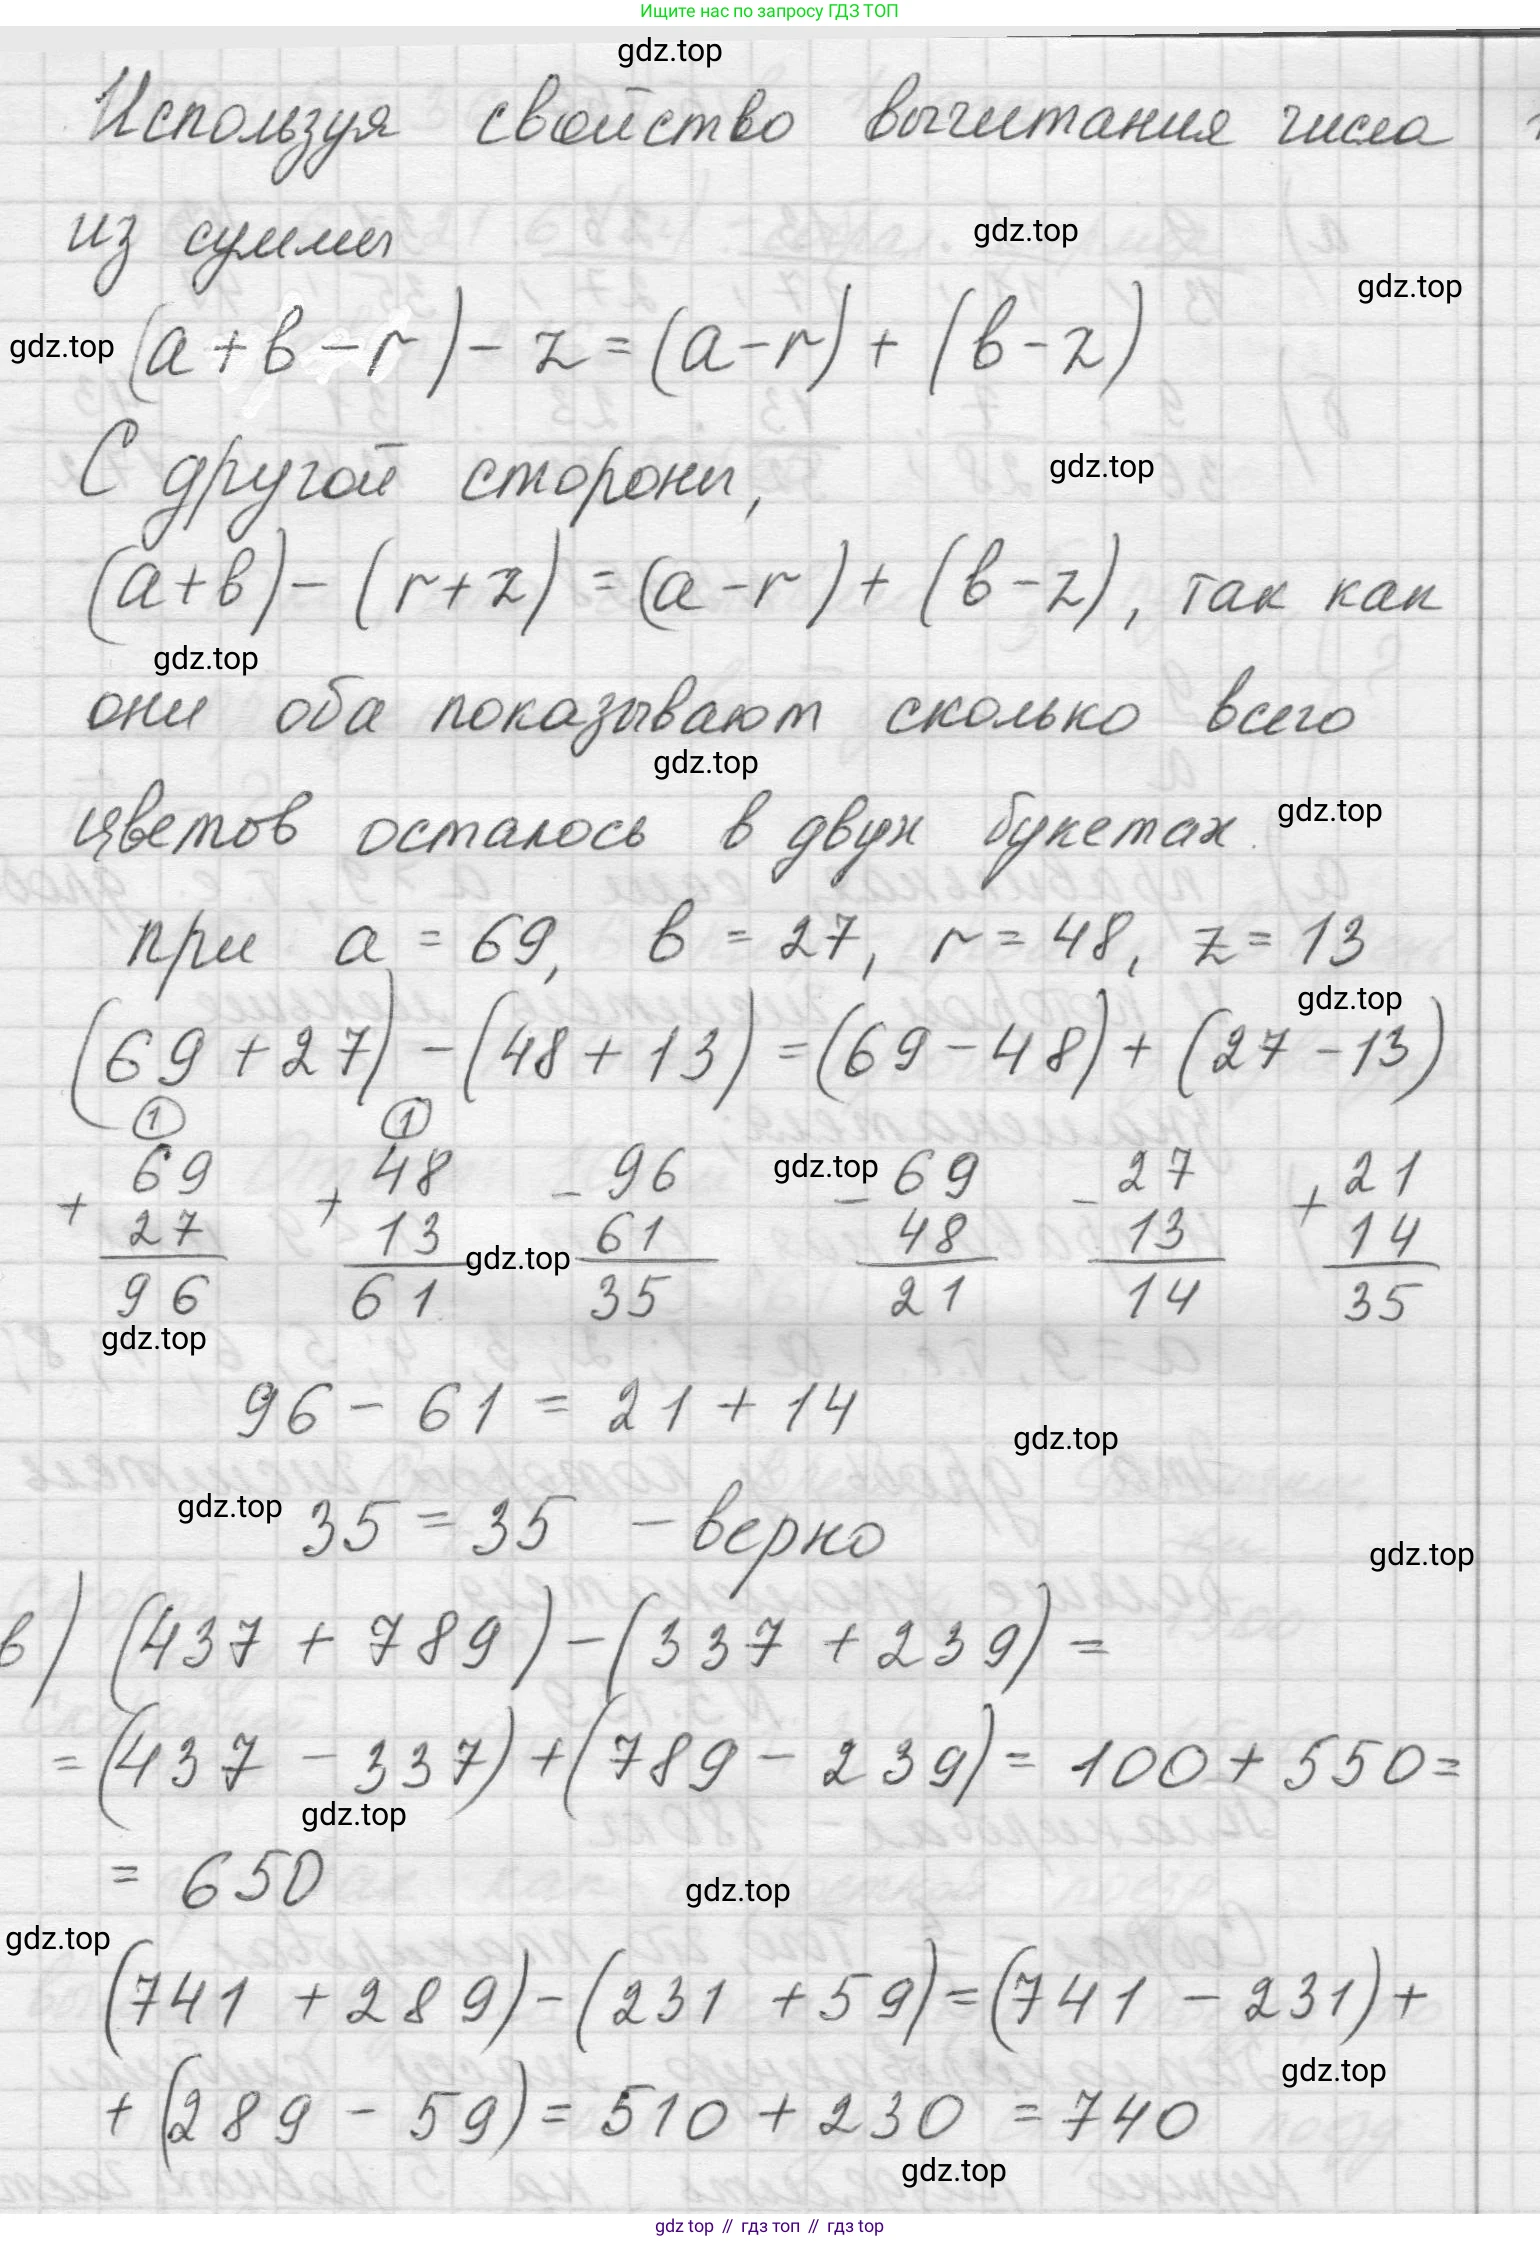 Ищите нас по запросу ГДЗ ТОП
gdz.top
Используя свойство вычитания числа
из суммы
gdz.top
gdz.top
gdz.top
(a + b - r) - z = (a - r) + (b - z)
С другой стороны,
gdz.top
(a + b) - (r + z) = (a - r) + (b - z), так как
gdz.top
они оба показывают сколько всего
gdz.top
цветов осталось в двух букетах.
gdz.top
при a = 69, b = 27, r = 48, z = 13
gdz.top
(69 + 27) - (48 + 13) = (69 - 48) + (27 - 13)
1 1
+ 69 + 48 - 96 gdz.top - 69 - 27 + 21
27 13 gdz.top 61 48 13 14
96 61 35 21 14 35
gdz.top
96 - 61 = 21 + 14
gdz.top
gdz.top 35 = 35 - верно
gdz.top
в) (437 + 789) - (337 + 239) =
= (437 - 337) + (789 - 239) = 100 + 550 =
gdz.top
= 650
gdz.top
gdz.top
(741 + 289) - (231 + 59) = (741 - 231) +
gdz.top
+ (289 - 59) = 510 + 230 = 740
gdz.top
gdz top // гдз топ // gdz.top